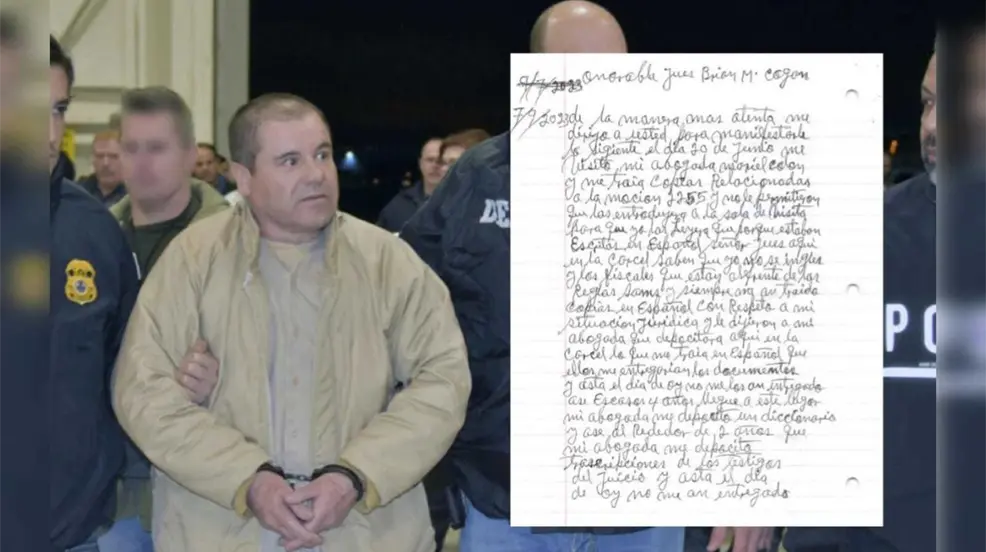 7/7/2023 onorable Jues Brian M. cogan
7/9/2023 de la manera mas atenta me
dirijo a usted para manifestarle
lo sigiente el dia 20 de Junio me
visito mi abogada mariel colon
y me traia copias Relacionadas
a la mocion 2255 y no le permitieron
que las entradujera a la sala de visita
para que yo las leyera que porque estaban
Escritas en Español señor Jues aqui
en la carcel saben que yo no se ingles
y los fiscales que estan al frente de las
Reglas sams y siempre me an traido
copias en Español con Respeto a mi
situacion Juridica y le dijeron a mi
abogada que depocitara aqui en la
carcel lo que me traia en Español que
ellos me entregarian los documentos
y asta el dia de oy no me los an entregado
ase Escasos 4 años llegue a este lugar
mi abogada me depocito un diccionario
y ase al Rededor de 2 años que
mi abogada me depocito
trascripciones de los testigos
del Juicio y asta el dia
de oy no me an entregado
DE
PO